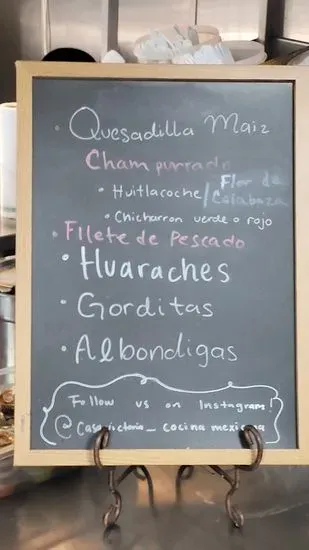 • Quesadilla Maiz
Champurrado
• Huitlacoche / Flor de Calabaza
• Chicharron verde o rojo
• Filete de Pescado
• Huaraches
• Gorditas
• Albondigas
Follow us on Instagram!
cocina